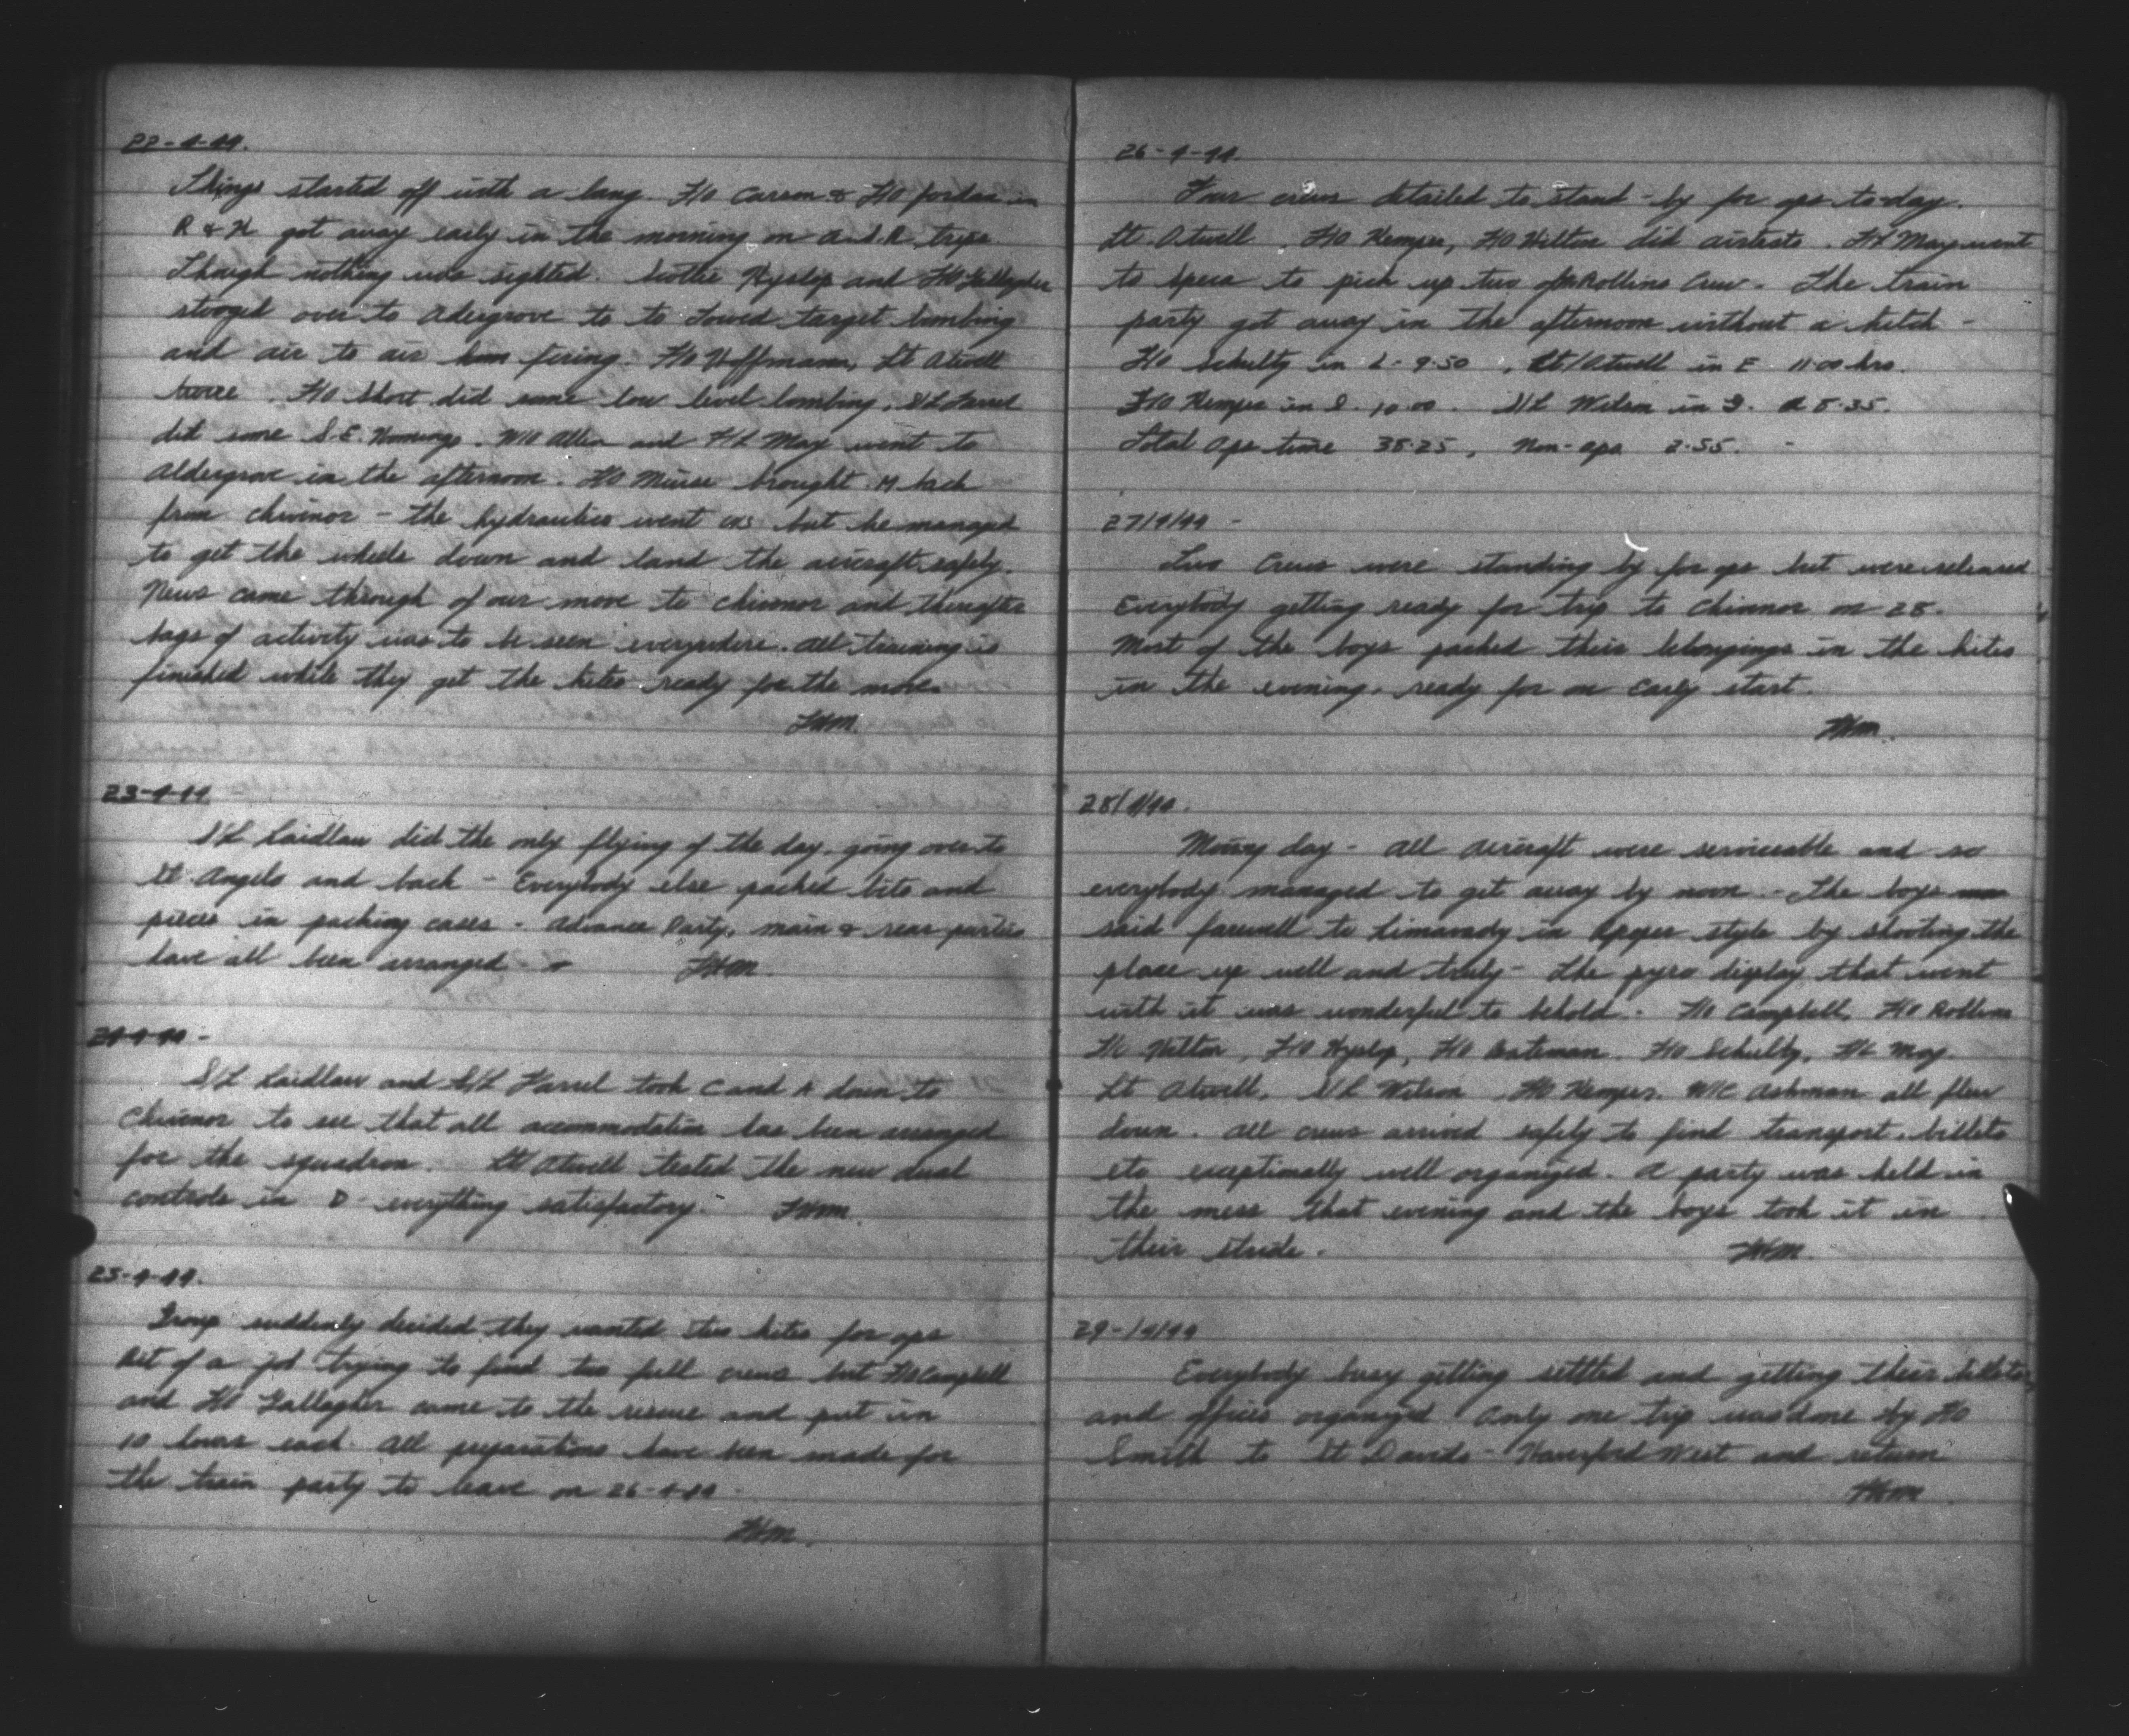 22-4-44.
Things started off with a bang. F/O Carson & F/O Jordan in
R & H got away early in the morning on A.S.R. trips
though nothing was sighted. Scottie Hyslop and F/O Gallagher
stooged over to Adergrove to to Towed target bombing
and air to air firing. F/O Hoffmann, Lt Atwell
twice. F/O Short did some low level bombing. S/L Farrel
did some S.E. Homings. and F/L May went to
Aldergrove in the afternoon. F/O Muise brought M back
from Chivenor - the hydraulics went U/S but he managed
to get the wheels down and land the aircraft safely.
News came through of our move to Chivenor and thereafter
bags of activity was to be seen everywhere. All training is
finished while they get the kites ready for the move.
FHM.
23-4-44
S/L Laidlaw did the only flying of the day, going over to
St Angelo and back - Everybody else packed bits and
pieces in packing cases - Advance Party, main & rear parties
have all been arranged - FHM.
24-4-44 -
S/L Laidlaw and S/L Farrel took C and A down to
Chivenor to see that all accommodation has been arranged
for the squadron. Lt Atwell tested the new dual
controls in D - everything satisfactory. FHM.
25-4-44.
Group suddenly decided they wanted two kites for ops
Bit of a job trying to find two full crews but F/O Campbell
and F/O Gallagher came to the rescue and put in
10 hours each. All preparations have been made for
the train party to leave on 26-4-44 -
FHM.
26-4-44.
Four crews detailed to stand-by for ops to-day.
Lt. Atwell F/O Kemper, F/O Hilton did airtests. F/L May went
to Speke to pick up two of Rollins Crew. The train
party got away in the afternoon without a hitch -
F/O Schulty in L - 9.50, Lt/Atwell in E 11.00 hrs.
F/O Kemper in S. 10.00. S/L Wilson in 8.35.
Total Ops time 38.25, Non-ops 2.55. -
27/4/44 -
Two Crews were standing by for ops but were released
Everybody getting ready for trip to Chivenor on 28.
Most of the boys packed their belongings in the kites
in the evening, ready for an early start.
FHM.
28/4/44.
Moving day - All aircraft were serviceable and so
everybody managed to get away by noon - The boys
said farewell to Limavady in proper style by shooting the
place up well and truly - The pyro display that went
with it was wonderful to behold. F/O Campbell, F/O Rollins
Hilton, F/O Hyslop, F/O Bateman. F/O Schulty, F/L May.
Lt Atwell, S/L Wilson F/O Kemper. W/C Ashman all flew
down. All crews arrived safely to find transport, billets
etc exceptionally well organized. A party was held in
the mess that evening and the boys took it in
their stride. FHM.
29-/4/44
Everybody busy getting settled and getting their billets
and offices organized. Only one trip was done by F/O
Smith to St Davids - Haverford West and return
FHM